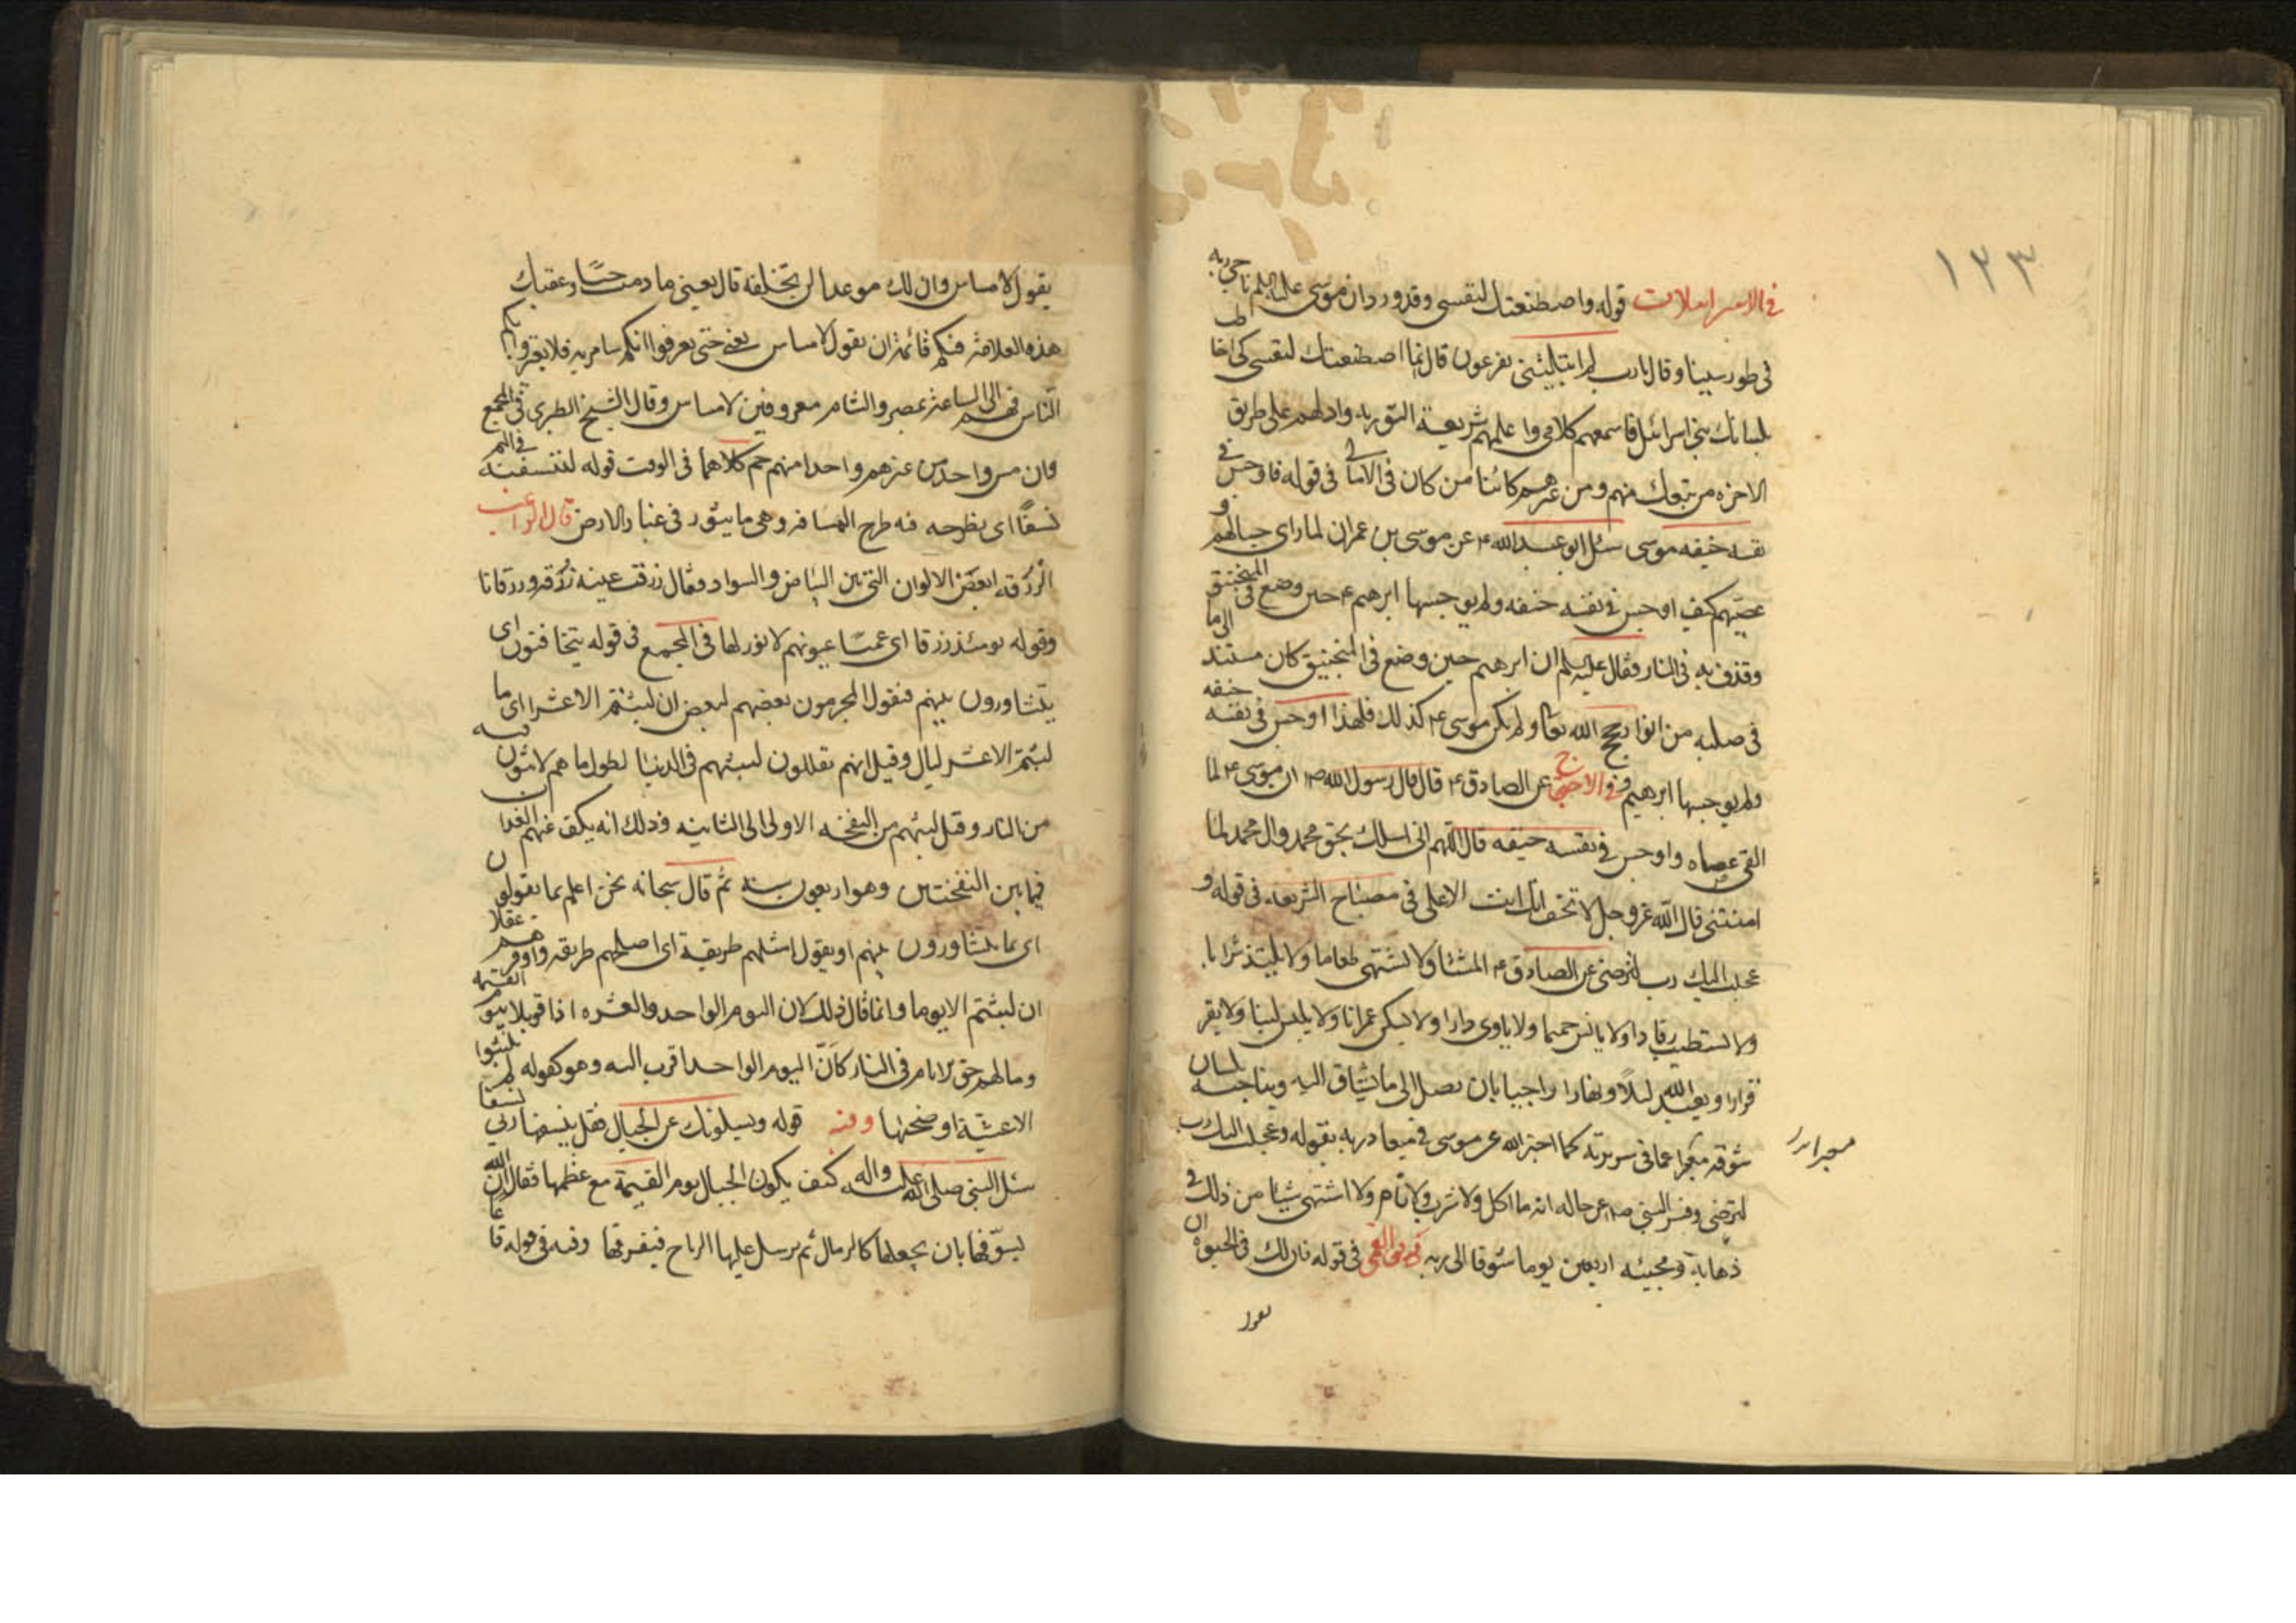 ١٢٣
في الاسرائيليات قوله واصطنعتك لنفسي وقد ورد ان موسى عليه السلم ناجى ربه
في طور سينا وقال يا رب لم ابتليتني بفرعون قال انما اصطنعتك لنفسي كي اخاطب
بلسانك بني اسرائيل فاسمعهم كلامي واعلمهم شريعة التورية وادلهم على طريق
الاخره من تبعك منهم ومن غيرهم كائنا من كان في الامالي في قوله فاوجس في
نفسه خيفه موسى سئل ابو عبد الله ع عن موسى بن عمران لما راى حبالهم و
عصيهم كيف اوجس في نفسه خيفه ولم يوجسها ابرهيم ع حين وضع في المنجنيق
وقذف به في النار فقال عليه السلم ان ابرهيم حين وضع في المنجنيق كان مستندا الى ما
في صلبه من انوار حجج الله تعا ولم يكن موسى ع كذلك فلهذا اوجس في نفسه خيفه
ولم يوجسها ابرهيم وفي الاحتجاج عن الصادق ع قال قال رسول الله ص ان موسى ع لما
القى عصاه واوجس في نفسه خيفه قال اللهم اني اسلك بحق محمد وال محمد لما
امنتني قال الله عز وجل لا تخف انك انت الاعلى في مصباح الشريعه في قوله و
عجلت اليك رب لترضى عن الصادق ع المشتاق لا يشتهي طعاما ولا يلتذ شرابا
ولا يستطيب رقادا ولا يانس حميما ولا ياوي دارا ولا يسكن عمرانا ولا يلبس لينا ولا يقر
قرارا ويعبد الله ليلا ونهارا راجيا بان يصل الى ما يشتاق اليه ويناجيه بلسان
شوقه معبرا عما في سريرته كما اخبر الله عن موسى في ميعاد ربه بقوله وعجلت اليك رب
لترضى وفسر النبي ص عن حاله انه ما اكل ولا شرب ولا نام ولا اشتهى شيئا من ذلك في
ذهابه ومجيئه اربعين يوما شوقا الى ربه القمي في قوله فان لك في الحيوة ان
تقول
يقول لا مساس وان لك موعدا لن تخلفه قال يعني ما دمت حيا وعقبك
هذه العلامه فيكم قائمه ان يقول لا مساس يعني حتى يعرفوا انكم سامريه فلا يغتروا بكم
الناس فهم الى الساعه بمصر والشام معروفين لا مساس وقال الشيخ الطبرسي في المجمع
وان مس واحد من غيرهم واحدا منهم حم كلاهما في الوقت قوله لننسفنه في اليم
نسفا اى يطرحه فيه طرح النسافه وهي ما يثور في غبار الارض قال الراغب
الزرقه ابعض الالوان التي بين البياض والسواد وقال زرقت عينه زرقه وزرقانا
وقوله يومئذ زرقا اى عميا عيونهم لا نور لها في المجمع في قوله يتخافتون اى
يتشاورون بينهم فيقول المجرمون بعضهم لبعض ان لبثتم الا عشرا اى ما
لبثتم الا عشر ليال وقيل انهم يقللون لبثهم في الدنيا لطول ما هم لابثون فيه
من النار وقيل لبثهم من النفخه الاولى الى الثانيه وذلك انه يكف عنهم العذاب
فيما بين النفختين وهو اربعون سنه ثم قال سبحانه نحن اعلم بما يقولون
اى بما يتشاورون بينهم اذ يقول امثلهم طريقة اى اصلحهم طريقه واوفرهم عقلا
ان لبثتم الا يوما وانما قال ذلك لان اليوم الواحد والعشره اذا قوبلا بيوم القيمه
وما لهم من ايام في النار كان اليوم الواحد اقرب اليه وهو كقوله لم يلبثوا
الا عشية او ضحيها وفيه قوله ويسئلونك عن الجبال فقل ينسفها ربي نسفا
سئل النبي صلى الله عليه واله كيف يكون الجبال يوم القيمة مع عظمها فقال ان الله
يسوقها بان يجعلها كالرمال ثم يرسل عليها الرياح فيفرقها وفيه في قوله قاعا